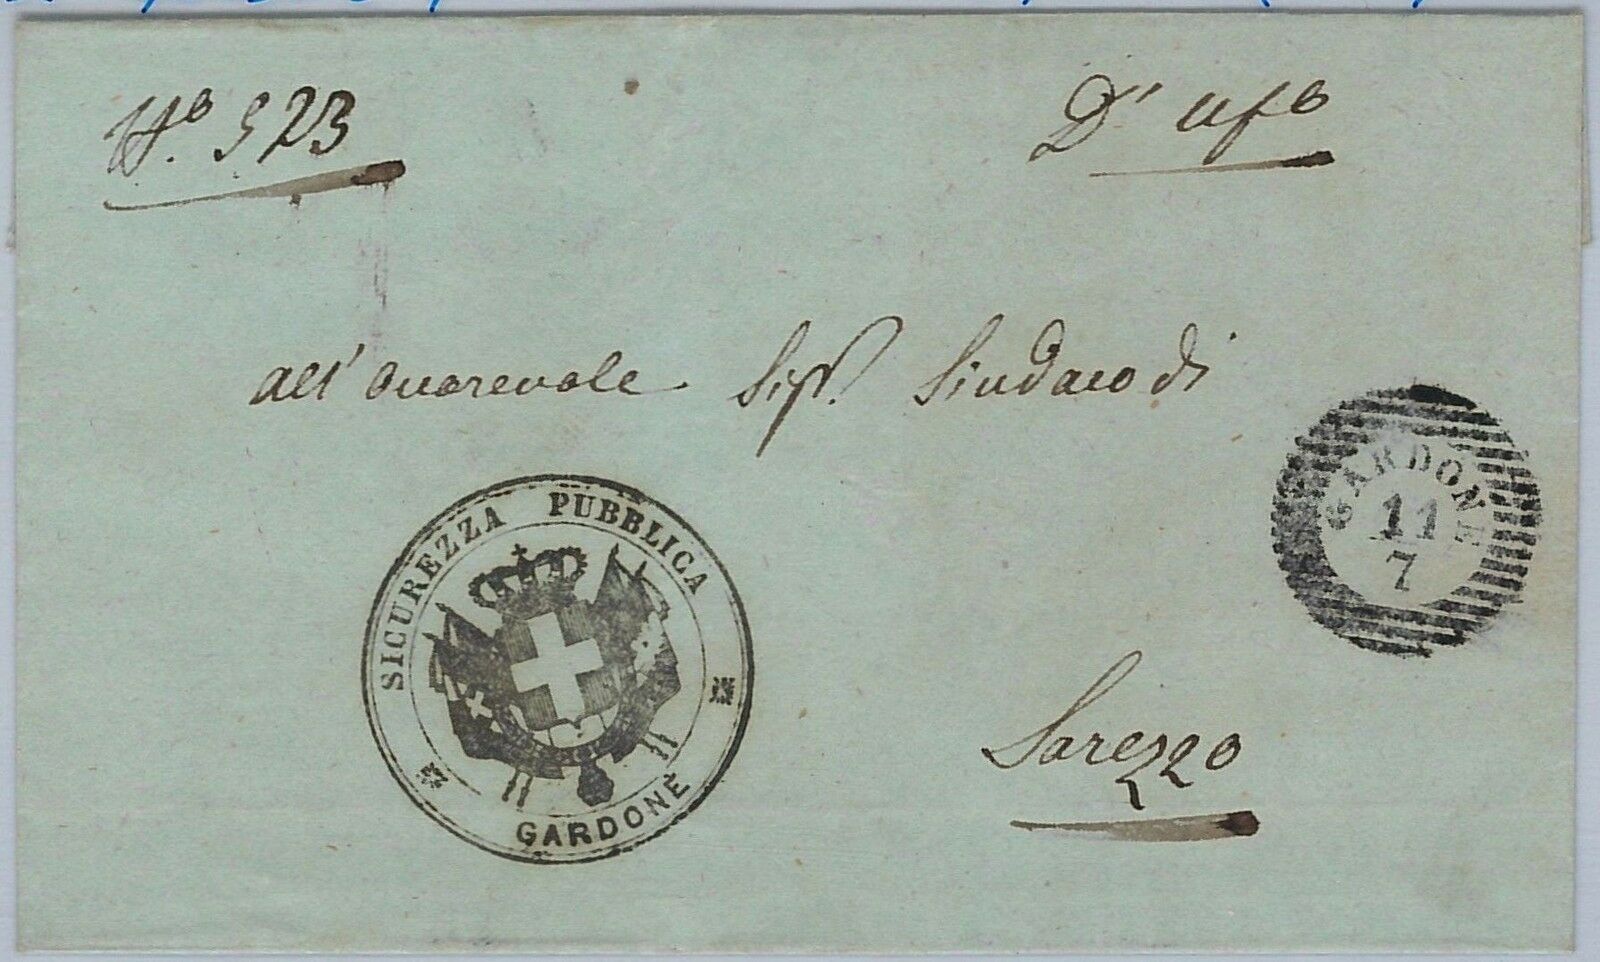 Nº. 523
D' ufº
all' onorevole Sigr. Sindaco di
SICUREZZA PUBBLICA
GARDONE
GARDONE
11
7
Sarezzo